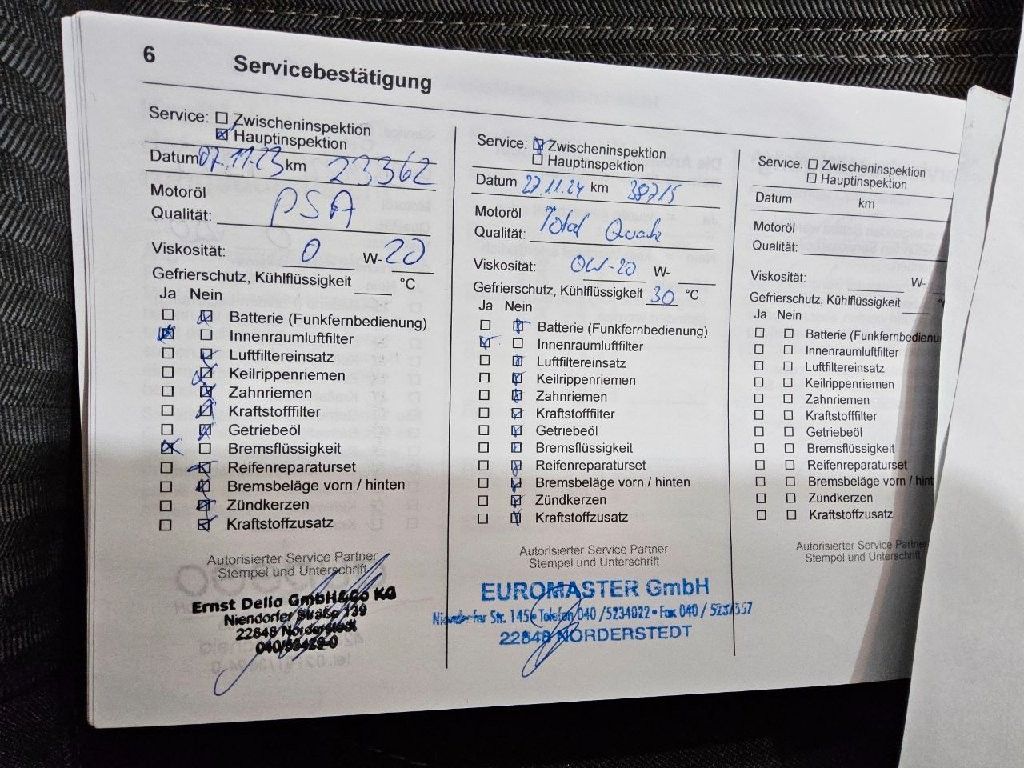 6 Servicebestätigung
Service: Zwischeninspektion
Hauptinspektion
Datum 07.11.23 km 23362
Motoröl
Qualität: PSA
Viskosität: 0 W-20
Gefrierschutz, Kühlflüssigkeit °C
Ja Nein
Batterie (Funkfernbedienung)
Innenraumluftfilter
Luftfiltereinsatz
Keilrippenriemen
Zahnriemen
Kraftstofffilter
Getriebeöl
Bremsflüssigkeit
Reifenreparaturset
Bremsbeläge vorn / hinten
Zündkerzen
Kraftstoffzusatz
Autorisierter Service Partner
Stempel und Unterschrift
Ernst Dello GmbH&Co KG
Niendorfer Straße 139
22848 Norderstedt
Service: Zwischeninspektion
Hauptinspektion
Datum 27.11.24 km 38715
Motoröl
Qualität: Total
Viskosität: 0W-20 W-
Gefrierschutz, Kühlflüssigkeit 30 °C
Ja Nein
Batterie (Funkfernbedienung)
Innenraumluftfilter
Luftfiltereinsatz
Keilrippenriemen
Zahnriemen
Kraftstofffilter
Getriebeöl
Bremsflüssigkeit
Reifenreparaturset
Bremsbeläge vorn / hinten
Zündkerzen
Kraftstoffzusatz
Autorisierter Service Partner
Stempel und Unterschrift
EUROMASTER GmbH
Niendorfer Str. 145 • Telefon 040 / 5234022 • Fax 040 /
22848 NORDERSTEDT
Service: Zwischeninspektion
Hauptinspektion
Datum km
Motoröl
Qualität:
Viskosität: W-
Gefrierschutz, Kühlflüssigkeit
Ja Nein
Batterie (Funkfernbedienu
Innenraumluftfilter
Luftfiltereinsatz
Keilrippenriemen
Zahnriemen
Kraftstofffilter
Getriebeöl
Bremsflüssigkeit
Reifenreparaturset
Bremsbeläge vorn / hint
Zündkerzen
Kraftstoffzusatz
Autorisierter Service Partner
Stempel und Unterschrift